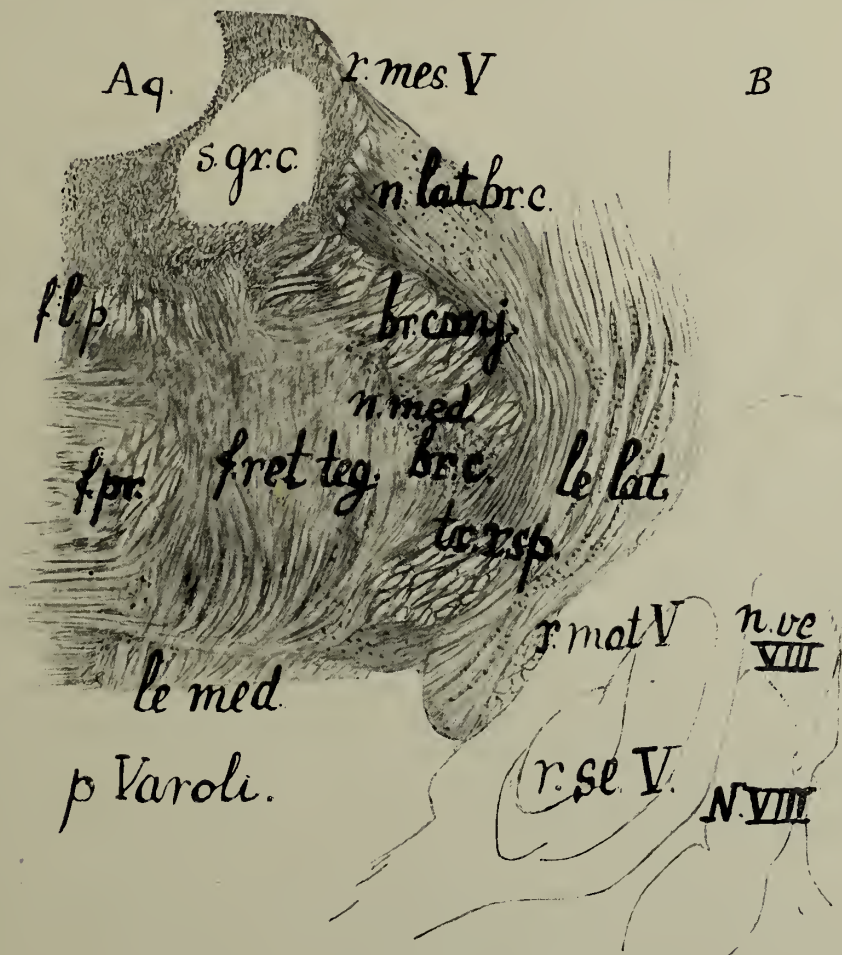 r. mes. V
Aq.
B
s. gr. c.
n. lat. br. c.
f. l. p.
br. conj.
n. med.
br. c.
f. pr.
f. ret teg.
le lat.
tr. r. sp.
r. mot V
n. ve
VIII
le med.
p Varoli.
r. se. V.
N. VIII